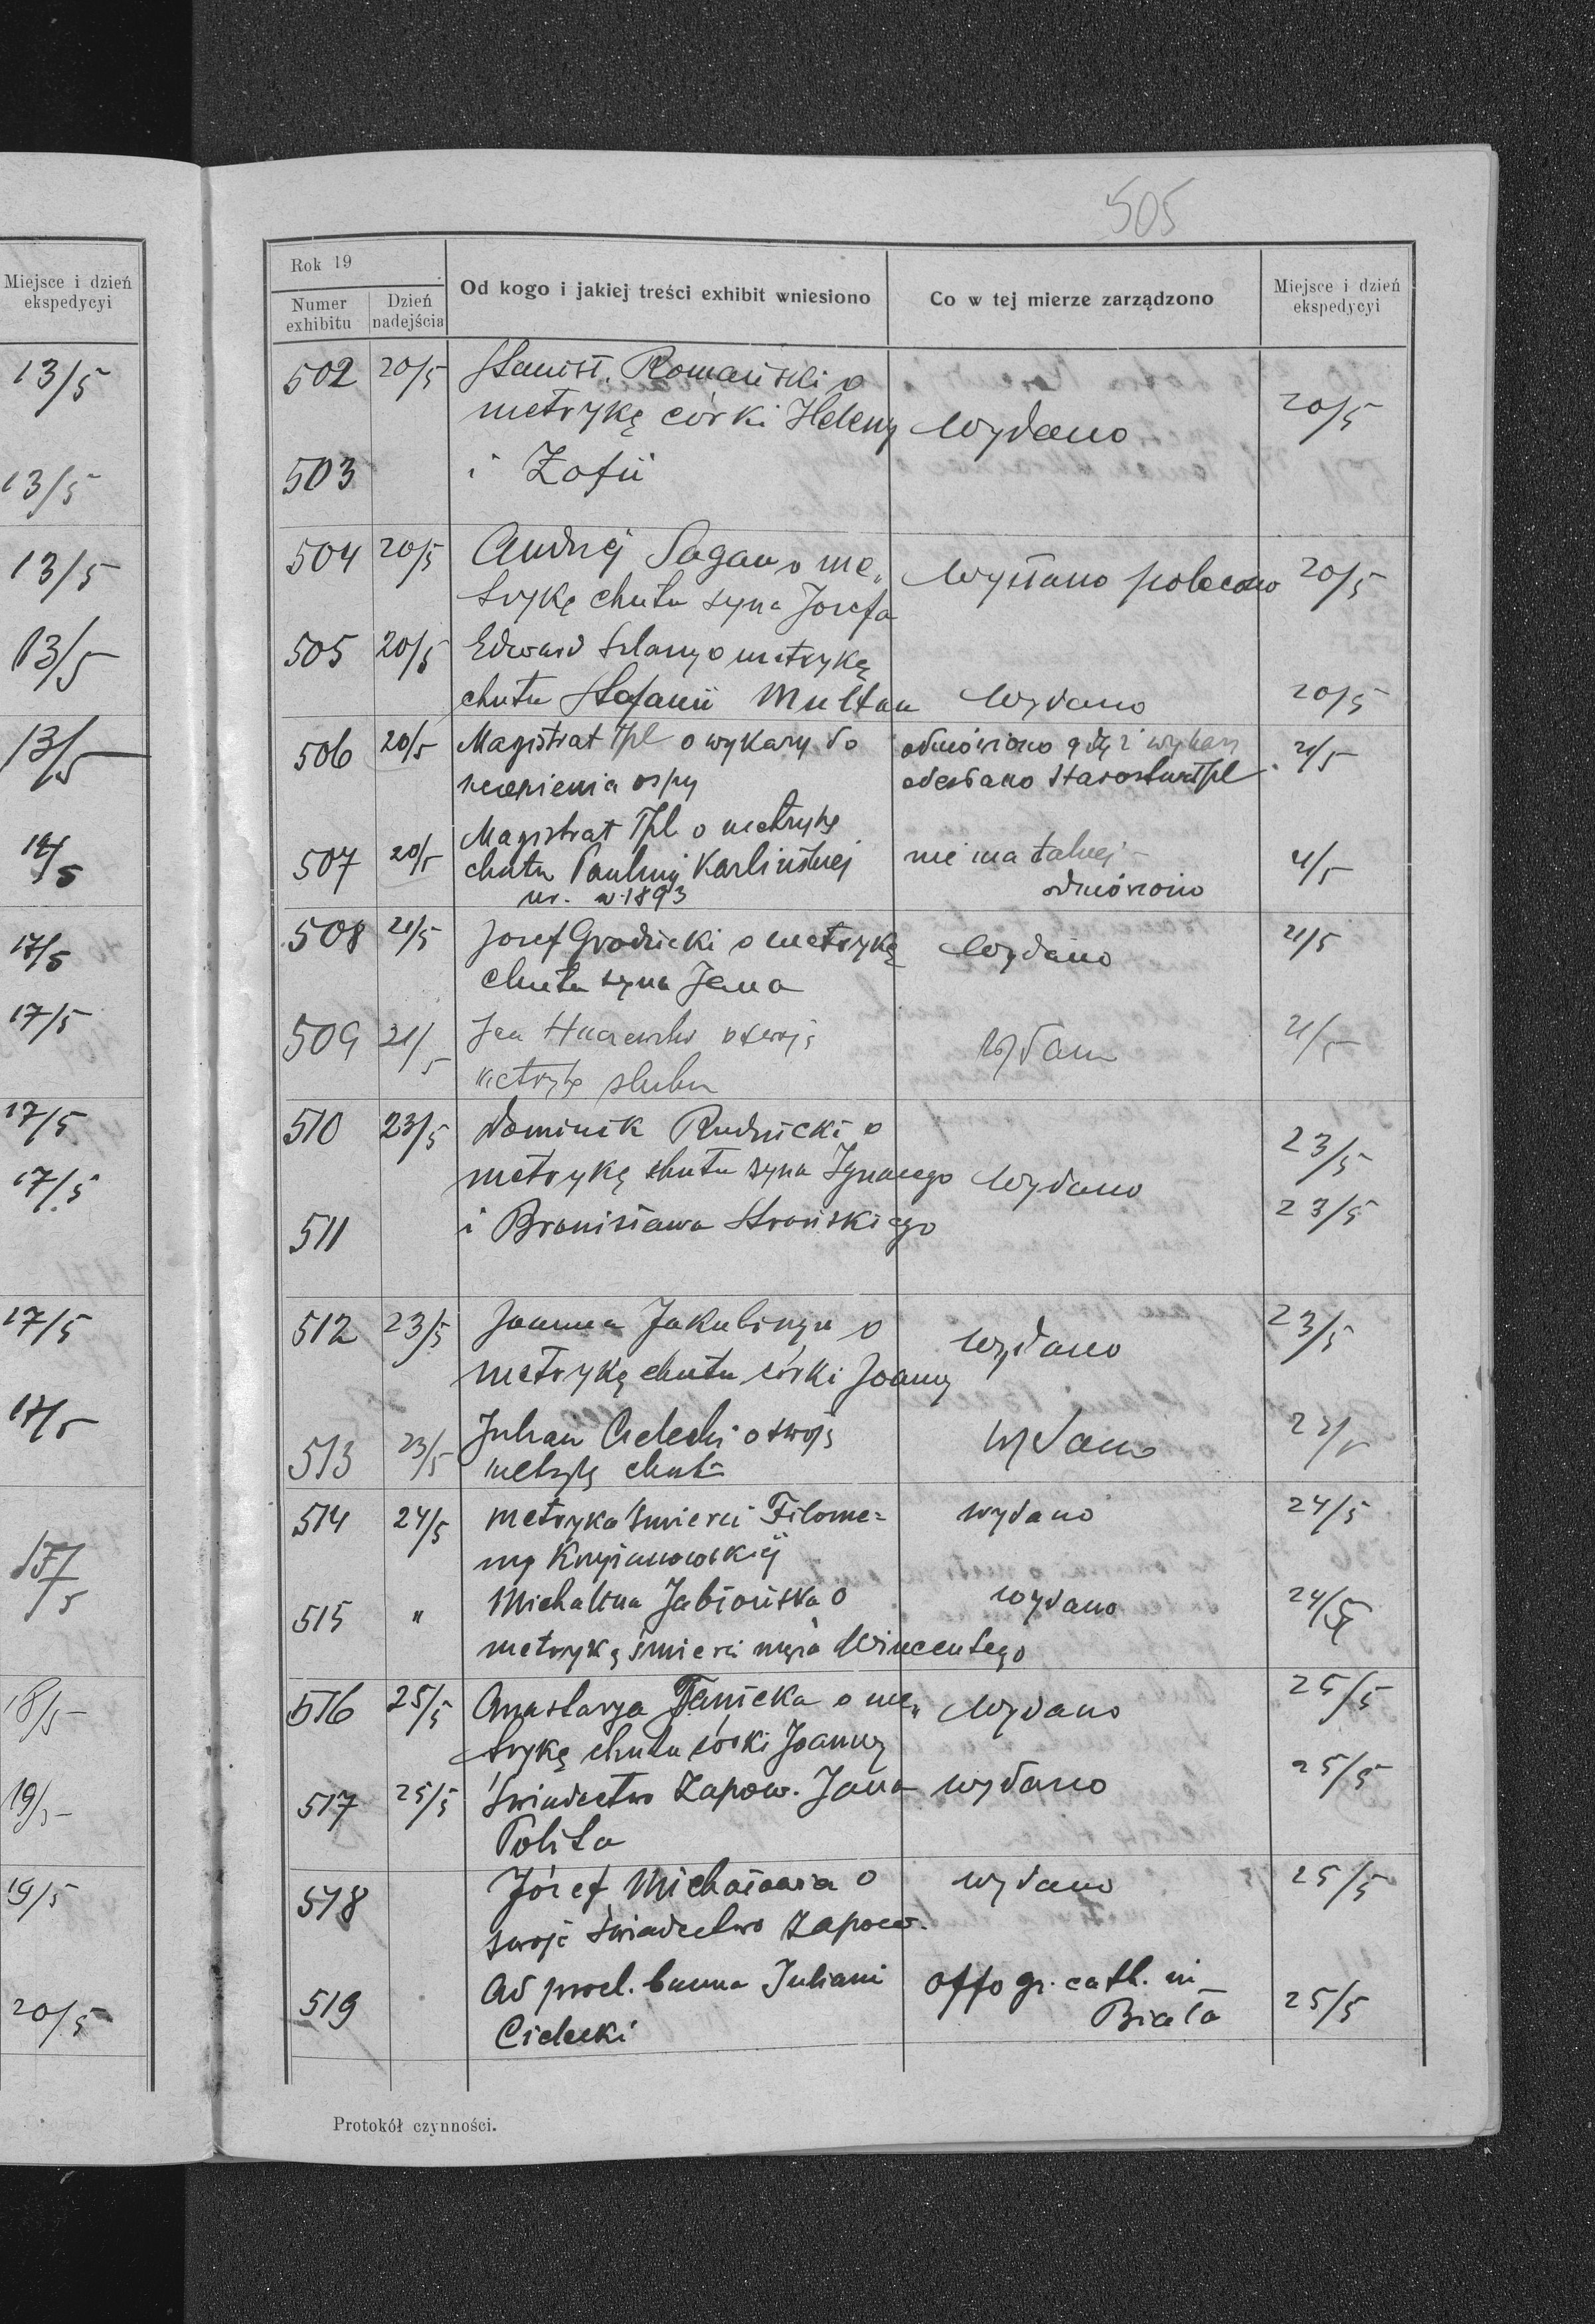 Miejsce i dzień
ekspedycyi
13/5
13/5
13/5
13/5
13/5
17/5
17/5
17/5
17/5
17/5
17/5
18/5
19/5
19/5
20/5
505
Rok 19
Numer
exhibitu
Dzień
nadejścia
Od kogo i jakiej treści exhibit wniesiono
Co w tej mierze zarządzono
Miejsce i dzień
ekspedycyi
502 20/5 Stanisł. Romański o
metrykę córki Heleny wydano 20/5
503 i Zofii
504 20/5 Andrzej Sagan o me„
trykę chrztu syna Józefa wysłano polecono 20/5
505 20/5 Edward o metrykę
chrztu Stefanii Multan wydano 20/5
506 20/5 Magistrat Tpl o wykazy do odmówiono gdyż wykazy
szczepienia ospy odesłano Starostwu Tpl. 21/5
507 20/5 Magistrat Tpl o metrykę
chrztu Pauliny Karlińskiej nie ma takiej - 21/5
ur. w 1893 odmówiono
508 21/5 Józef Grodzicki o metrykę wydano 21/5
chrztu syna Jana
509 21/5 Jan o swoją wydano 21/5
metrykę ślubu
510 23/5 Dominik Rudnicki o 23/5
metrykę chrztu syna Ignacego wydano
511 i Bronisława Strońskiego 23/5
512 23/5 Joanna o wydano 23/5
metrykę chrztu córki Joanny
513 23/5 Julian Cielecki o swoją wydano 23/5
metrykę chrztu
514 24/5 metryka śmierci Filome= wydano 24/5
ny Krzyżanowskiej
515 " Michalina Jabłońska o wydano 24/5
metrykę śmierci męża Wincentego
516 25/5 Anastazya Janicka o me„ wydano 25/5
trykę chrztu córki Joanny
517 25/5 Świadectwo zapow. Jana wydano 25/5
Polita
518 Józef o wydano 25/5
swoje świadectwo zapow.
519 Ad procl. banna Juliani offo gr. cath. in
Cielecki Biała 25/5
Protokół czynności.